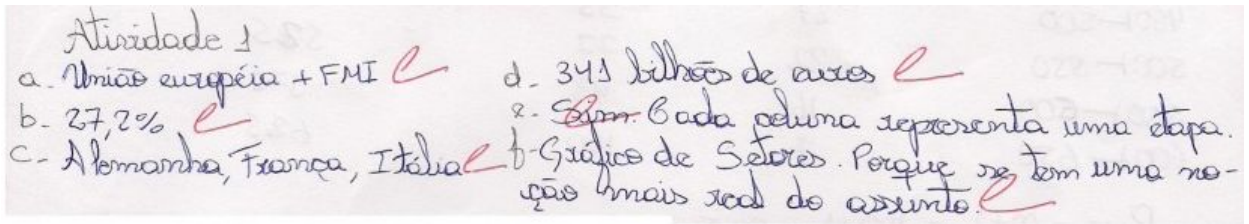 Atividade 1
a. União européia + FMI
b. 27,2%
c- Alemanha, França, Itália
d. 341 bilhões de euros
e. Sim. Cada coluna representa uma etapa.
f- Gráfico de Setores. Porque se tem uma no-
ção mais real do assunto.